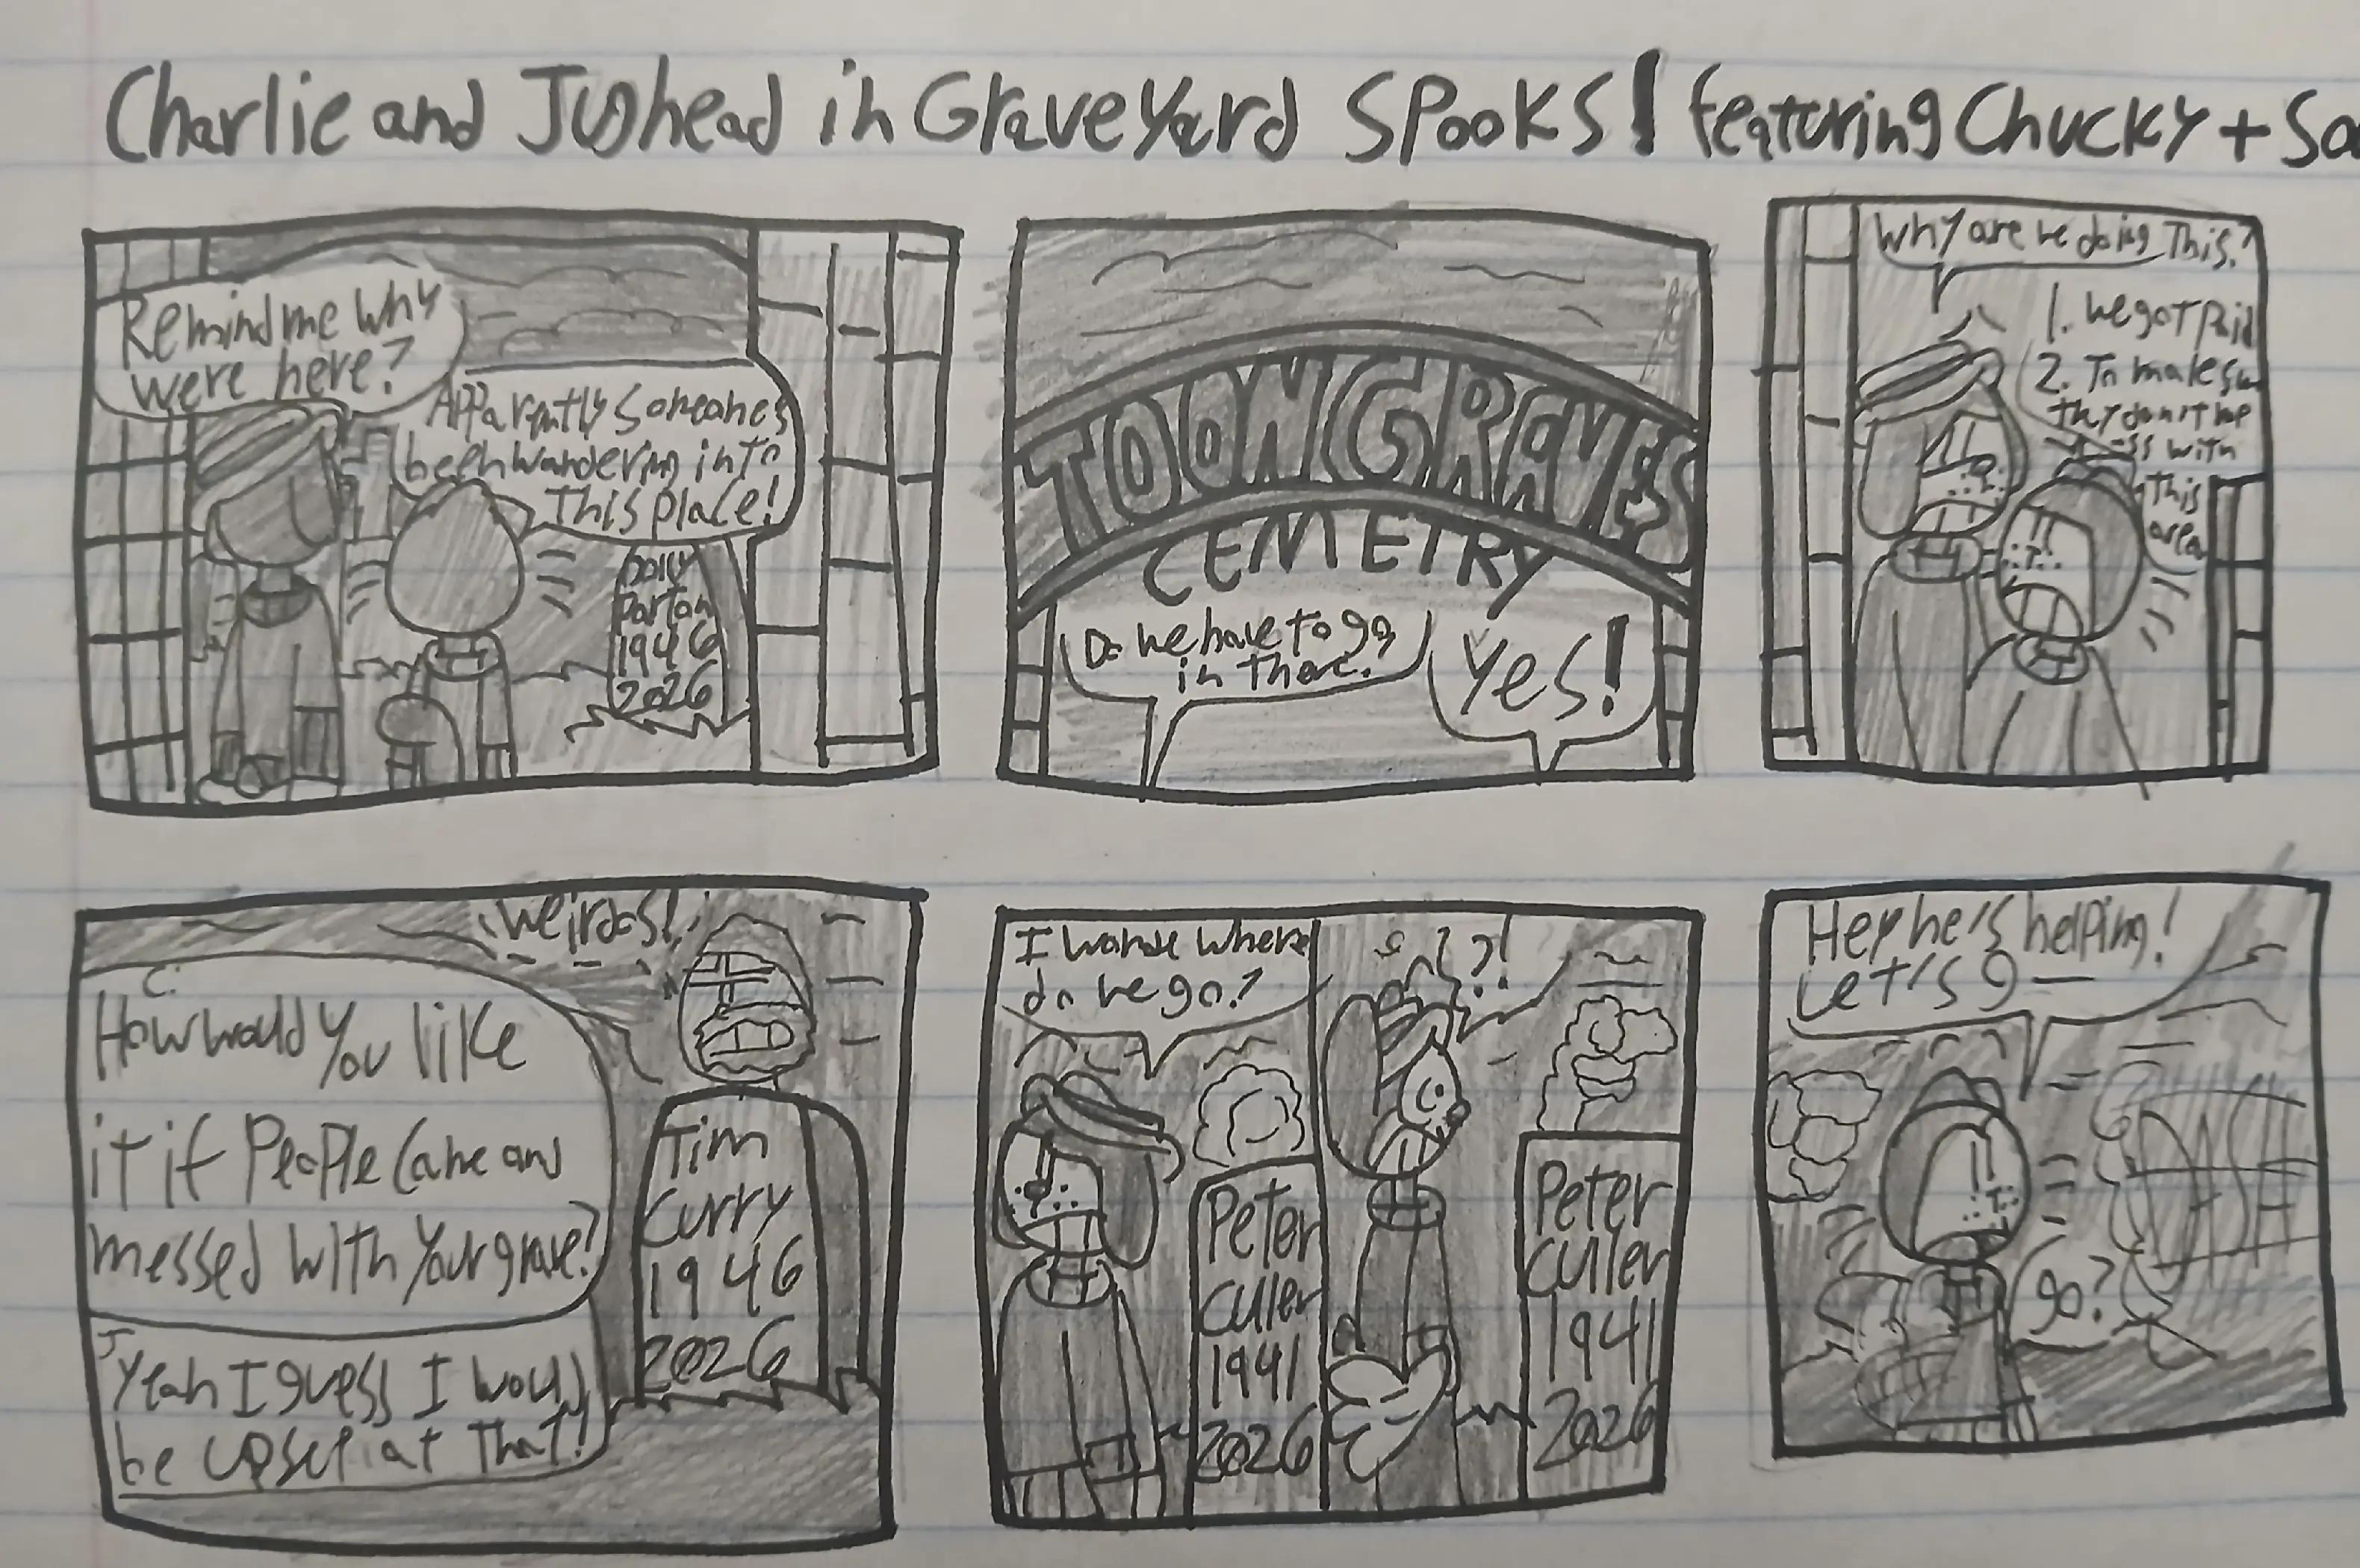 Charlie and Jughead in Graveyard Spooks! featuring Chucky + Sa
Remind me why
were here?
Apparently someone's
been wandering into
this place!
Dolly
Parton
1946
2026
TOONGRAVES
CEMETRY
Do we have to go
in there.
Yes!
Why are we doing This?
1. We got paid
2. To make su
they don't me
ss with
This
area
weirdos!
C:
How would you like
it if People came and
messed with your grave?
J
Yeah I guess I would
be upset at that!
Tim
Curry
1946
2026
I wonde where
do we go?
Peter
Culler
1941
2026
?!
Peter
Culler
1941
2026
Hey he's helping!
Let's g—
go?